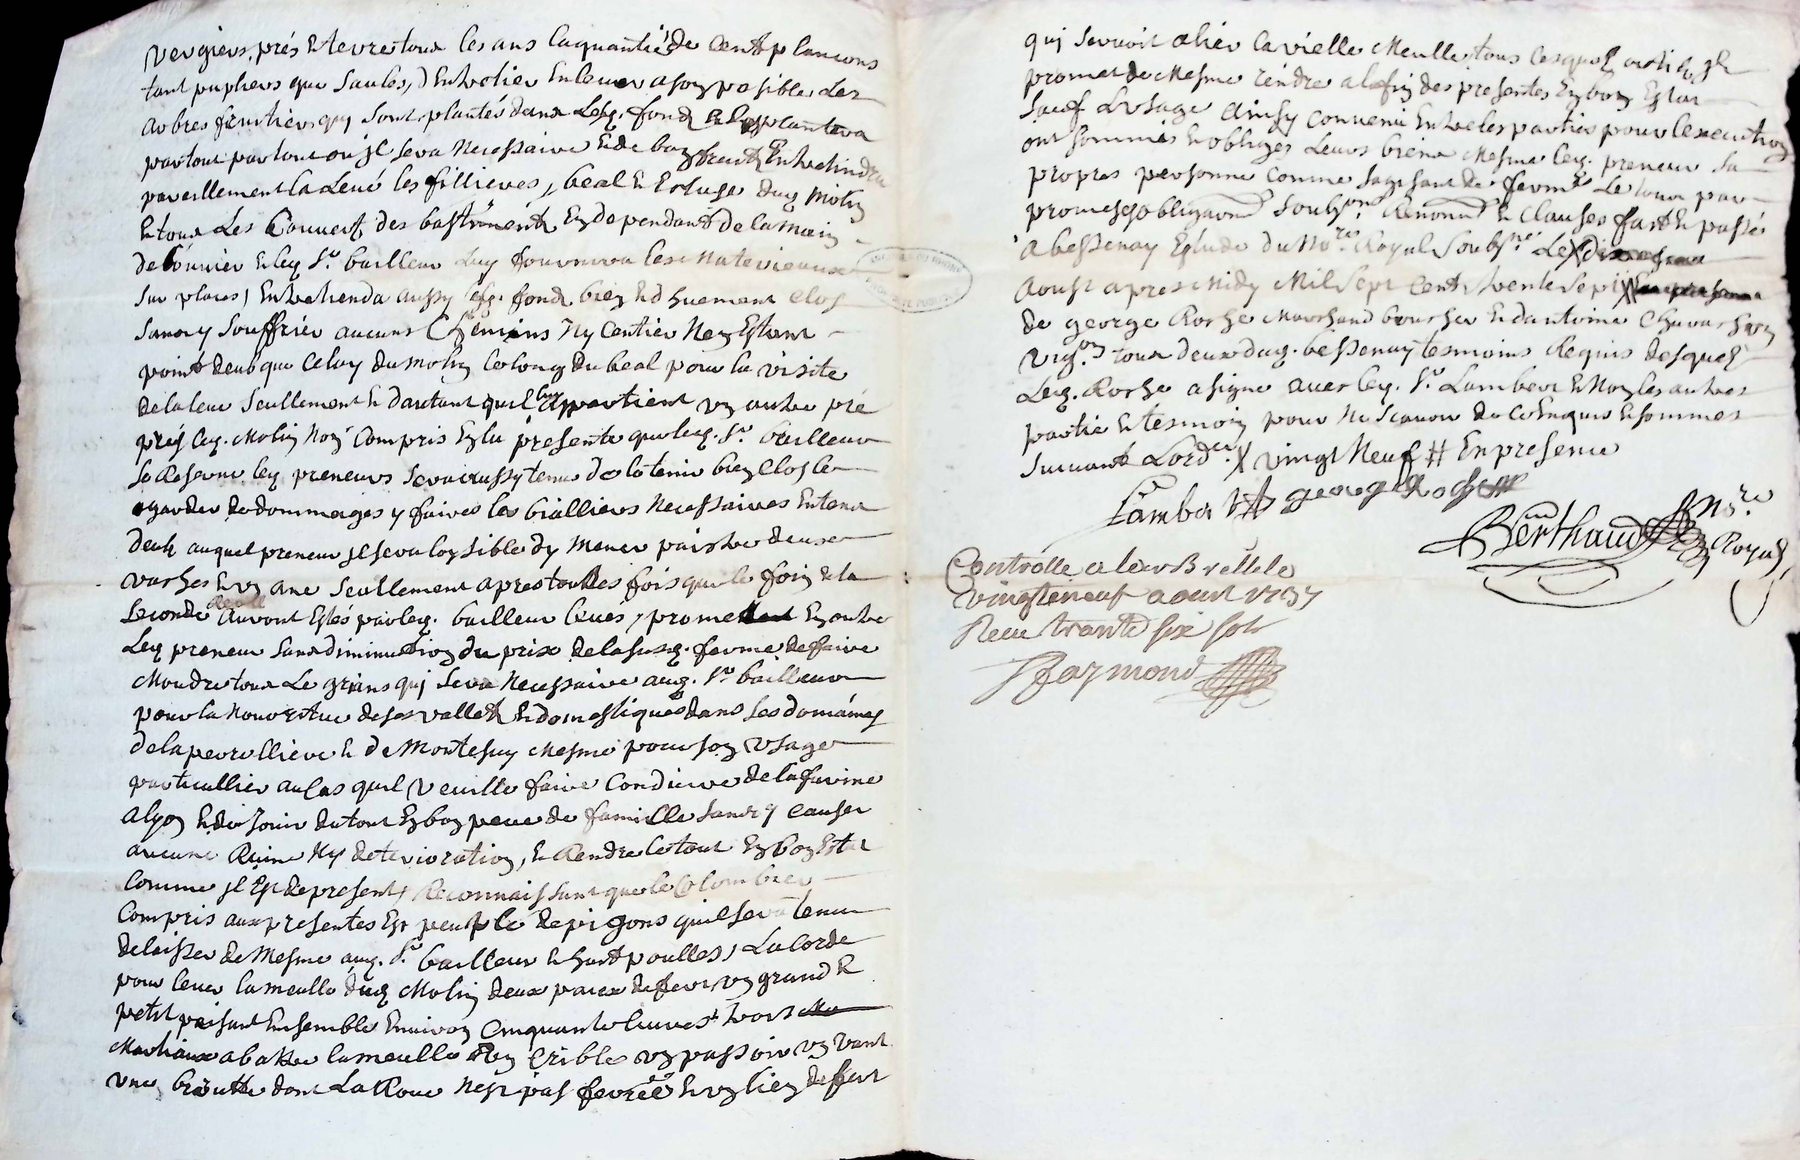 vergiers, prés et terre tous les ans la quantité de cent plancons
tant pupliers que saules, Entretier Enlever a son posible les
arbres fruitiers qui sont plantés dans lesq. fond et
partout partout ou jl sera necessaire et de bon fruit Entretindra
pareillement la leué les fillieres, beal et Ecluse duq molin
Et tous les Couvert des bastiments En dependant de la main
de Louvrier et leq Sr. bailleur luy fournira les materieaux
sur places, Entretienda aussy lesq. fond bien et duement clos
sans y souffrier aucuns Chemins ny Centier Ney Estant
point deub que celuy du molin le long du beal pour la visite
de la leué seullement et dautant quil luy appartient un autre pré
prés leq. Molin Non Compris En la presente que leq. Sr. bailleur
se Reserve leq preneurs sera aussy tenu de le tenir bien clos le
garder de dommages y faires les bialliers necessaires Entend
deub auquel preneur jl sera loysible dy mener paistre deux
vaches et un ane seullement apres touttes fois que le foin de la
seconde auront Estés par leq. bailleur levés, promettant En outre
leq preneur sans diminution du prix de la susq. ferme de faire
Moudre tous le grains qui sera necessaire auq. Sr. bailleur
pour la nourriture de ses vallets et domestiques dans ses domaines
de la perolliere et de Montesuy mesme pour son usage
particullier au cas quil veuille faire Conduire de la farine
a lyon et de jouir du tout En bon pere de famille sans y causer
aucune Ruine ny deterioration, et Rendre le tout En bon Estat
comme jl Est de present, Reconnaissant que le Colombier
compris aux presentes Est peuplé de pigons quil sera tenu
de laisser de mesme auq. Sr. bailleur et huit poulles, La corde
pour lever la meulle duq Molin deux paux de fer un grand et
petit pesant Ensemble Environ Cinquante livres trois
Martiaux abattre la meulle un Crible un passoir un vant
une brouette dont la Roue nest pas ferrée et un lien de fert
qui servoit a lier la vielle meulle, tous lesquels articles jl
promet de mesme rendre a la fin des presentes En bon Estat
sauf lusage Ainsy convenu Entre les parties pour lexecution
ont sommis et obliges leurs biens mesme leq. preneur sa
propres personne comme sagissant de ferme le tout par
promesses obligaons soubson. Renonon et Clauses fait et passés
a bessenay Estude du nore. Royal soubsné. Le X
aoust apres midy Mil sept cent trente sept
de george Roche Marchand boucher et dantoine
vigon tous deux duq. bessenay tesmoins Requis desquels
leq. Roche a signé avec leq. Sr. Lambert et Non les autres
partie et tesmoin pour ne scavoir de ce Enquis et sommes
suivant Lordce. X vingt Neuf # En presence
Lambert george Roche
Berthaud Nore Royal
Controlle a larbrelle le
vingt neuf aout 1737
Receu trante six sols
Raymond